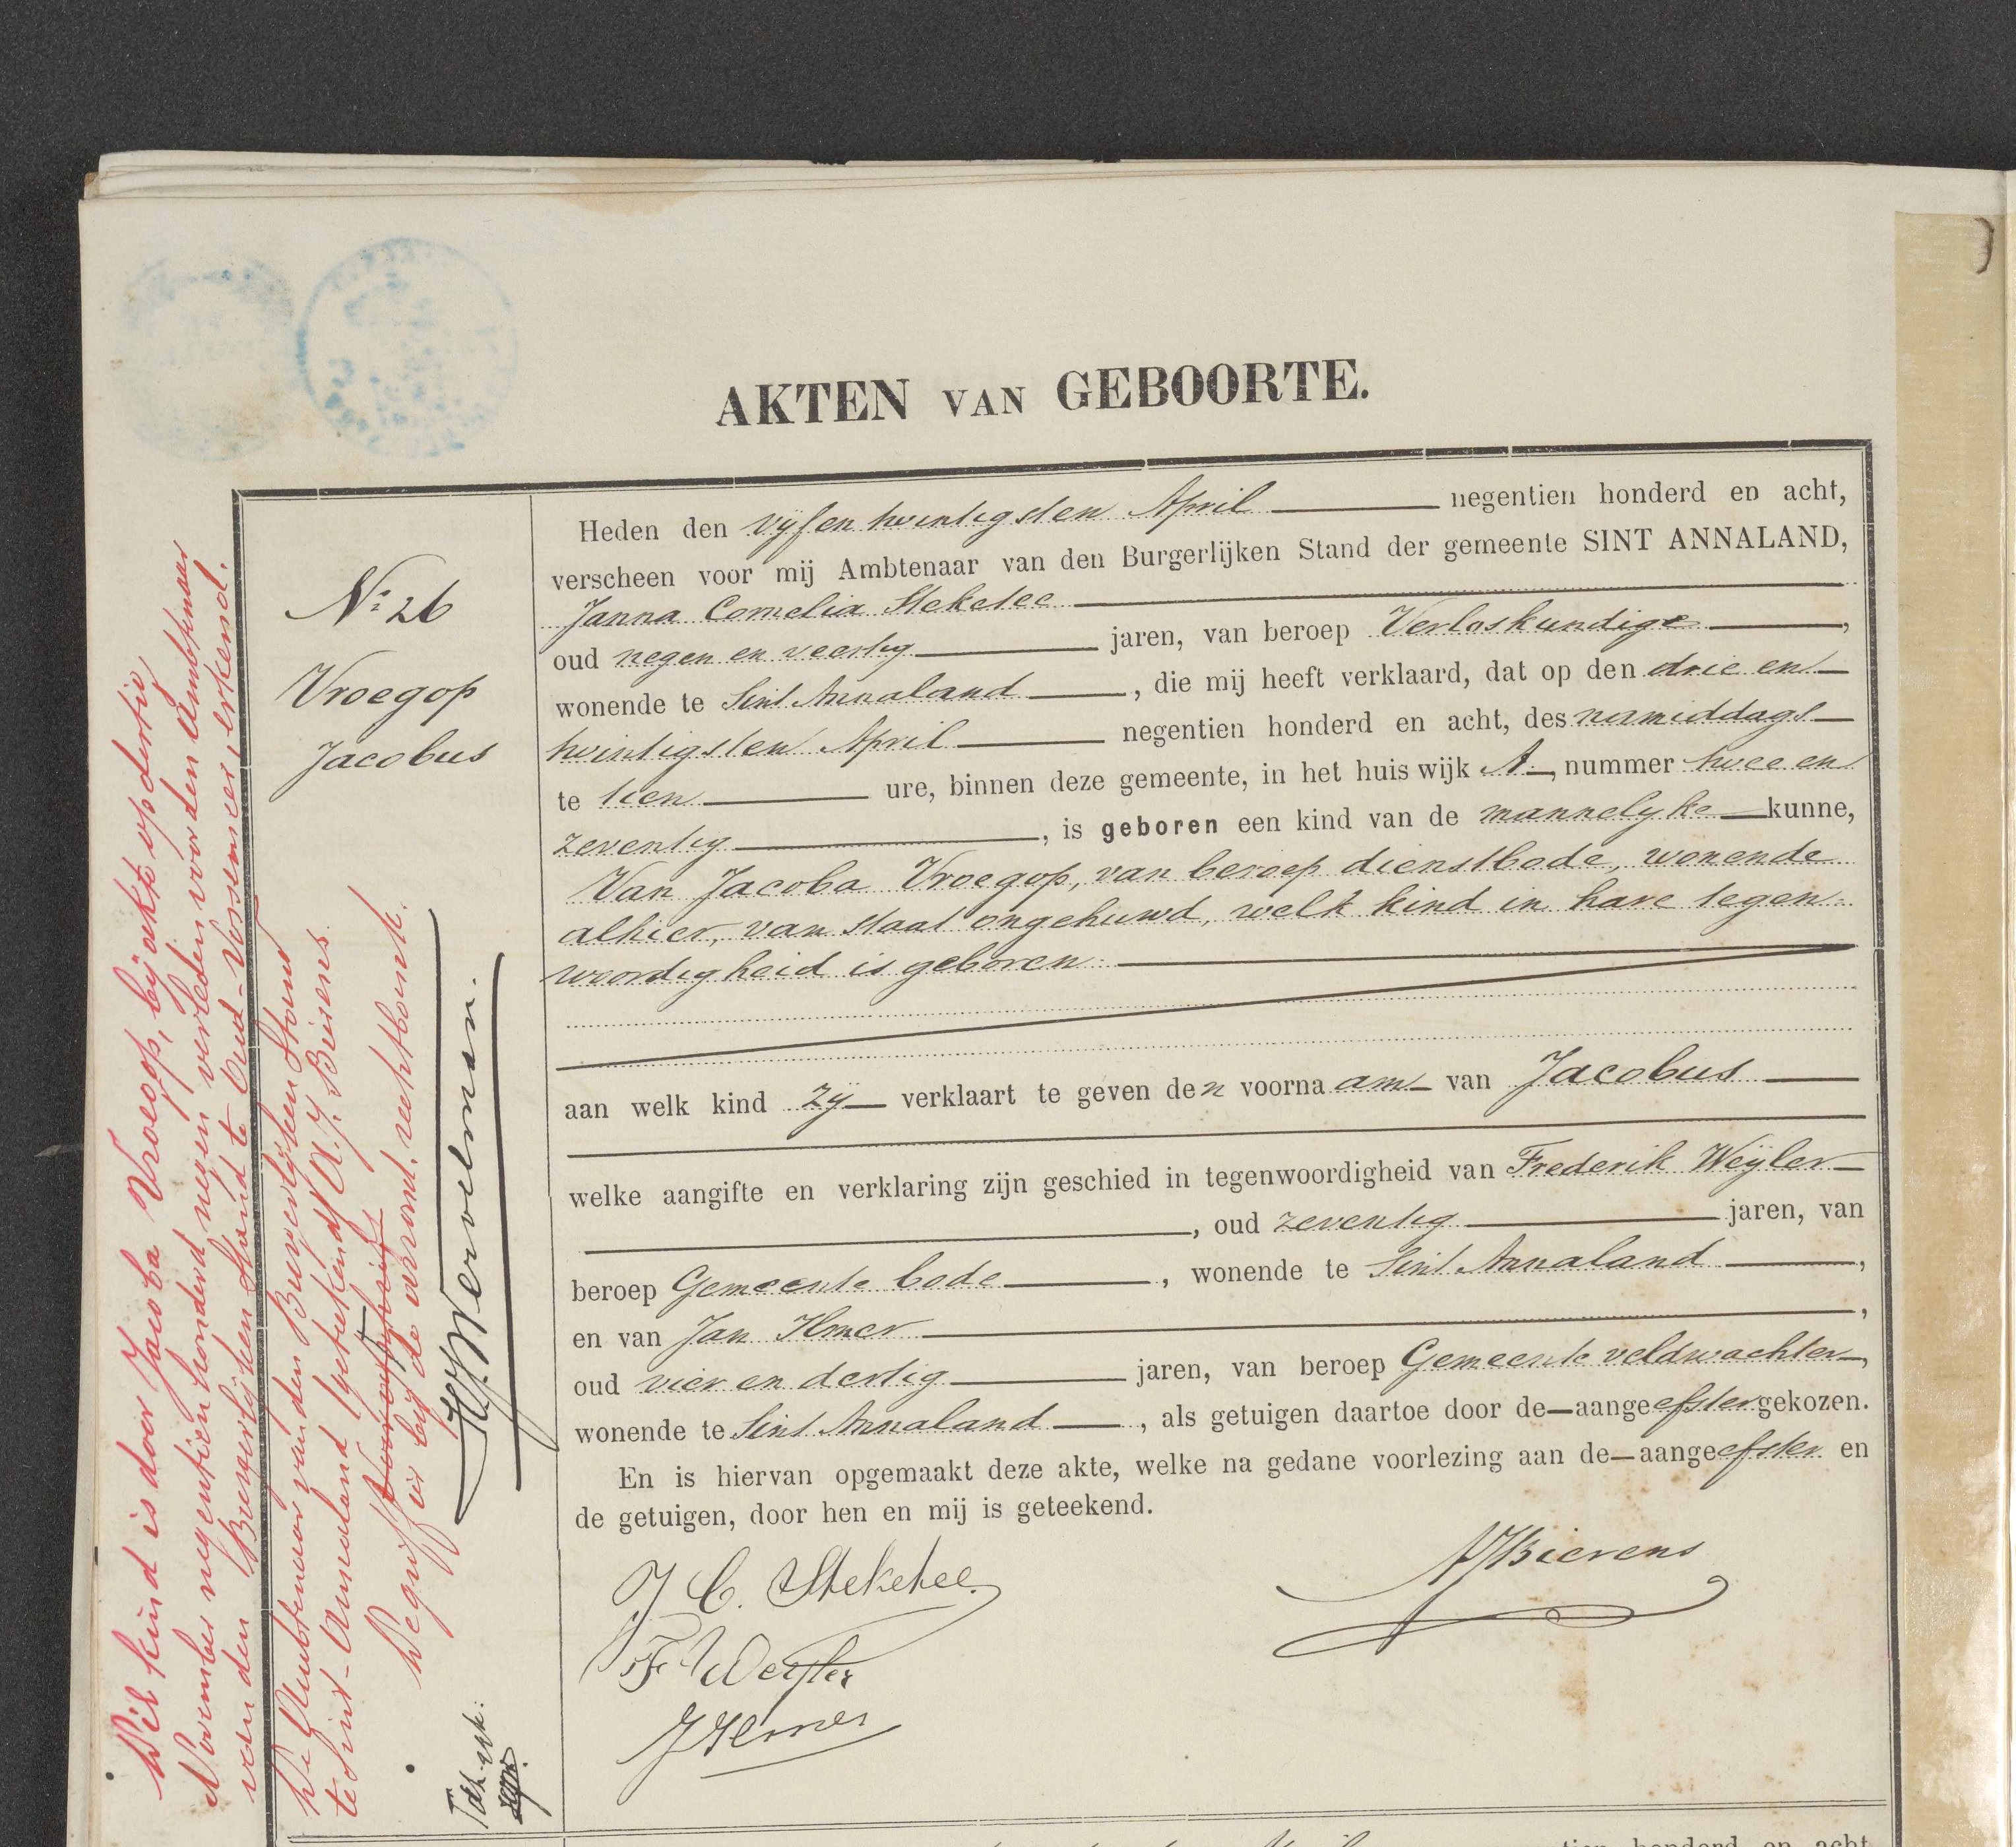 AKTEN VAN GEBOORTE.
Nº 26
Vroegop
Jacobus
Heden den vyf en twintigsten April negentien honderd en acht,
verscheen voor mij Ambtenaar van den Burgerlijken Stand der gemeente SINT ANNALAND,
Janna Cornelia Steketee
oud negen en veertig jaren, van beroep Verloskundige,
wonende te Sint Annaland, die mij heeft verklaard, dat op den drie en
twintigsten April negentien honderd en acht, des namiddags
te tien ure, binnen deze gemeente, in het huis wijk A, nummer twee en
zeventig, is geboren een kind van de mannelyke kunne,
Van Jacoba Vroegop, van beroep dienstbode, wonende
alhier, van staat ongehuwd, welk kind in hare tegen-
woordigheid is geboren.
aan welk kind zy verklaart te geven den voornaam van Jacobus
welke aangifte en verklaring zijn geschied in tegenwoordigheid van Frederik Weÿler
, oud zeventig jaren, van
beroep Gemeente bode, wonende te Sint Annaland,
en van Jan Ilmer,
oud vier en dertig jaren, van beroep Gemeente veldwachter,
wonende te Sint Annaland, als getuigen daartoe door de aangeefster gekozen.
En is hiervan opgemaakt deze akte, welke na gedane voorlezing aan de aangeefster en
de getuigen, door hen en mij is geteekend.
J C. Steketee
F Weyler
J Ilmer
AJBierens
Dit kind is door Jacoba Vroegop, bij akte op dertig
November negentienhonderd negen verleden voor den Ambtenaar
van den Burgerlijken Stand te Oud-Vossemeer, erkend.
De Ambtenaar van den Burgerlijken Stand
te Sint-Annaland (geteekend) A. J. Bierens.
Voor afschrift
De griffier bij de arrond. rechtbank.